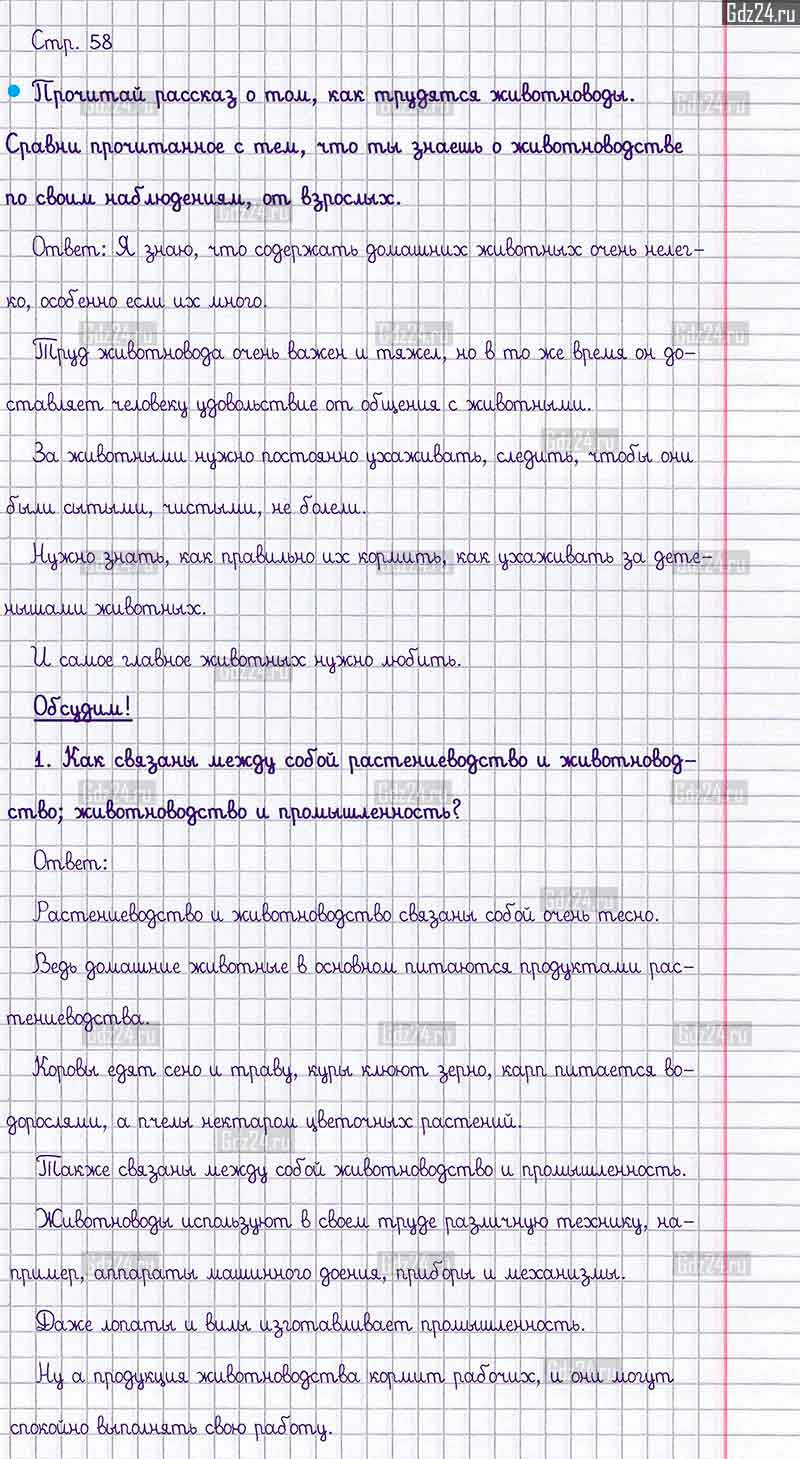 Gdz24.ru
Стр. 58
Прочитай рассказ о том, как трудятся животноводы.
Сравни прочитанное с тем, что ты знаешь о животноводстве
по своим наблюдениям, от взрослых.
Ответ: Я знаю, что содержать домашних животных очень нелег-
ко, особенно если их много.
Труд животновода очень важен и тяжел, но в то же время он до-
ставляет человеку удовольствие от общения с животными.
За животными нужно постоянно ухаживать, следить, чтобы они
были сытыми, чистыми, не болели.
Нужно знать, как правильно их кормить, как ухаживать за дете-
нышами животных.
И самое главное животных нужно любить.
Обсудим!
1. Как связаны между собой растениеводство и животновод-
ство; животноводство и промышленность?
Ответ:
Растениеводство и животноводство связаны собой очень тесно.
Ведь домашние животные в основном питаются продуктами рас-
тениеводства.
Коровы едят сено и траву, куры клюют зерно, карп питается во-
дорослями, а пчелы нектаром цветочных растений.
Также связаны между собой животноводство и промышленность.
Животноводы используют в своем труде различную технику, на-
пример, аппараты машинного доения, приборы и механизмы.
Даже лопаты и вилы изготавливает промышленность.
Ну а продукция животноводства кормит рабочих, и они могут
спокойно выполнять свою работу.